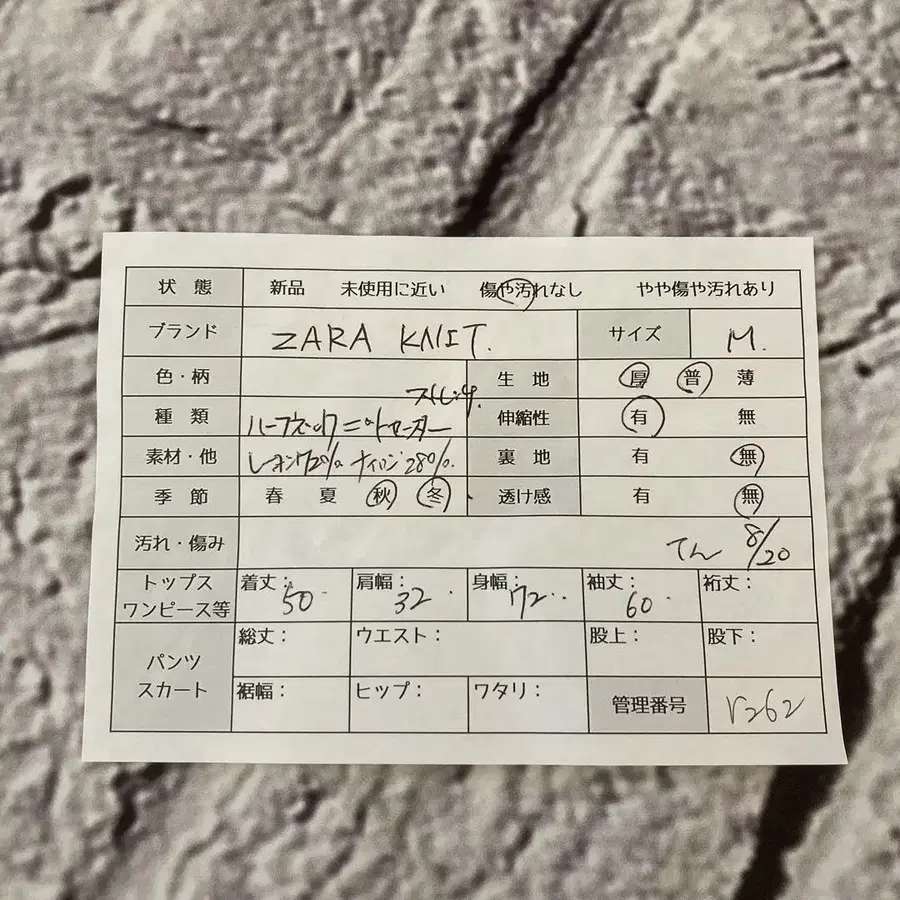 状 態 新品 未使用に近い 傷や汚れなし やや傷や汚れあり
ブランド ZARA KNIT. サイズ M.
色・柄 生 地 厚 普 薄
種 類 ハーフネック ニットセーター 伸縮性 有 無
素材・他 ナイロン28%. 裏 地 有 無
季 節 春 夏 秋 冬 透け感 有 無
汚れ・傷み てん 8/20
トップス ワンピース等 着丈: 50 肩幅: 32 身幅: 72 袖丈: 60 裄丈:
パンツ スカート 総丈: ウエスト: 股上: 股下:
裾幅: ヒップ: ワタリ: 管理番号 r262